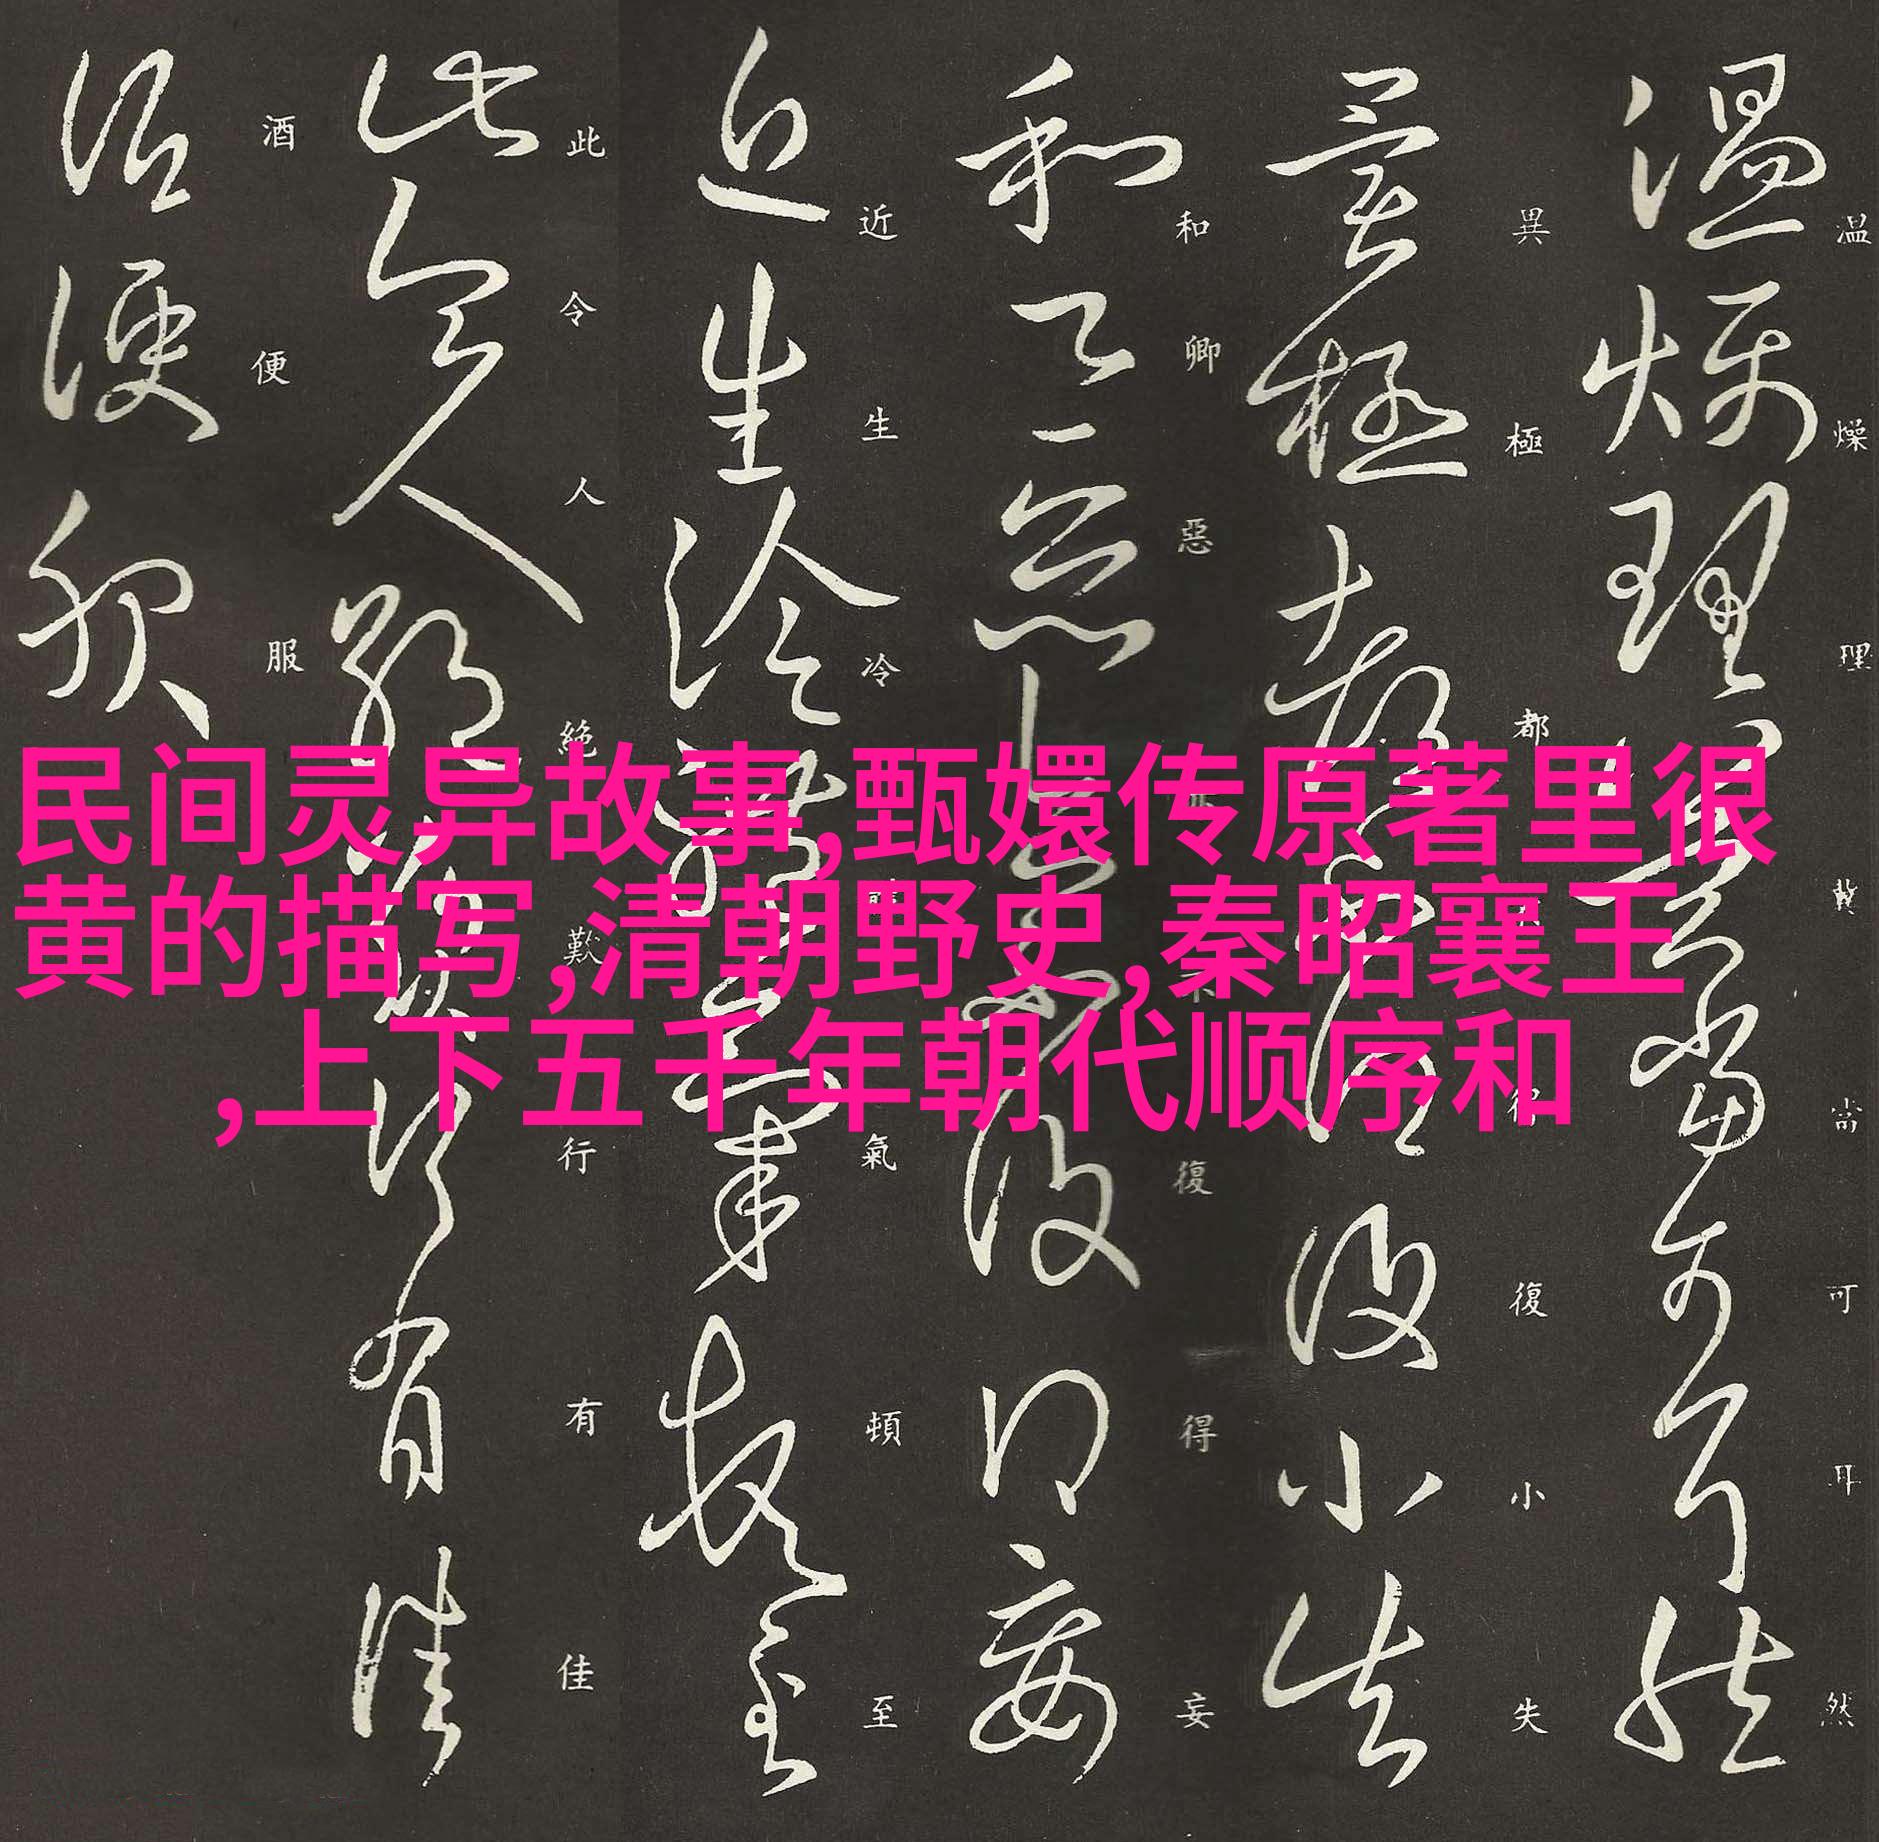 温燥理冀當可耳然
異極都大得復小失
和卿惡不復得妄
近生冷體氣頓至
此令人絶歎行有佳
酒便服
民间灵异故事,甄嬛传原著里很
黄的描写,清朝野史,秦昭襄王
,上下五千年朝代顺序和